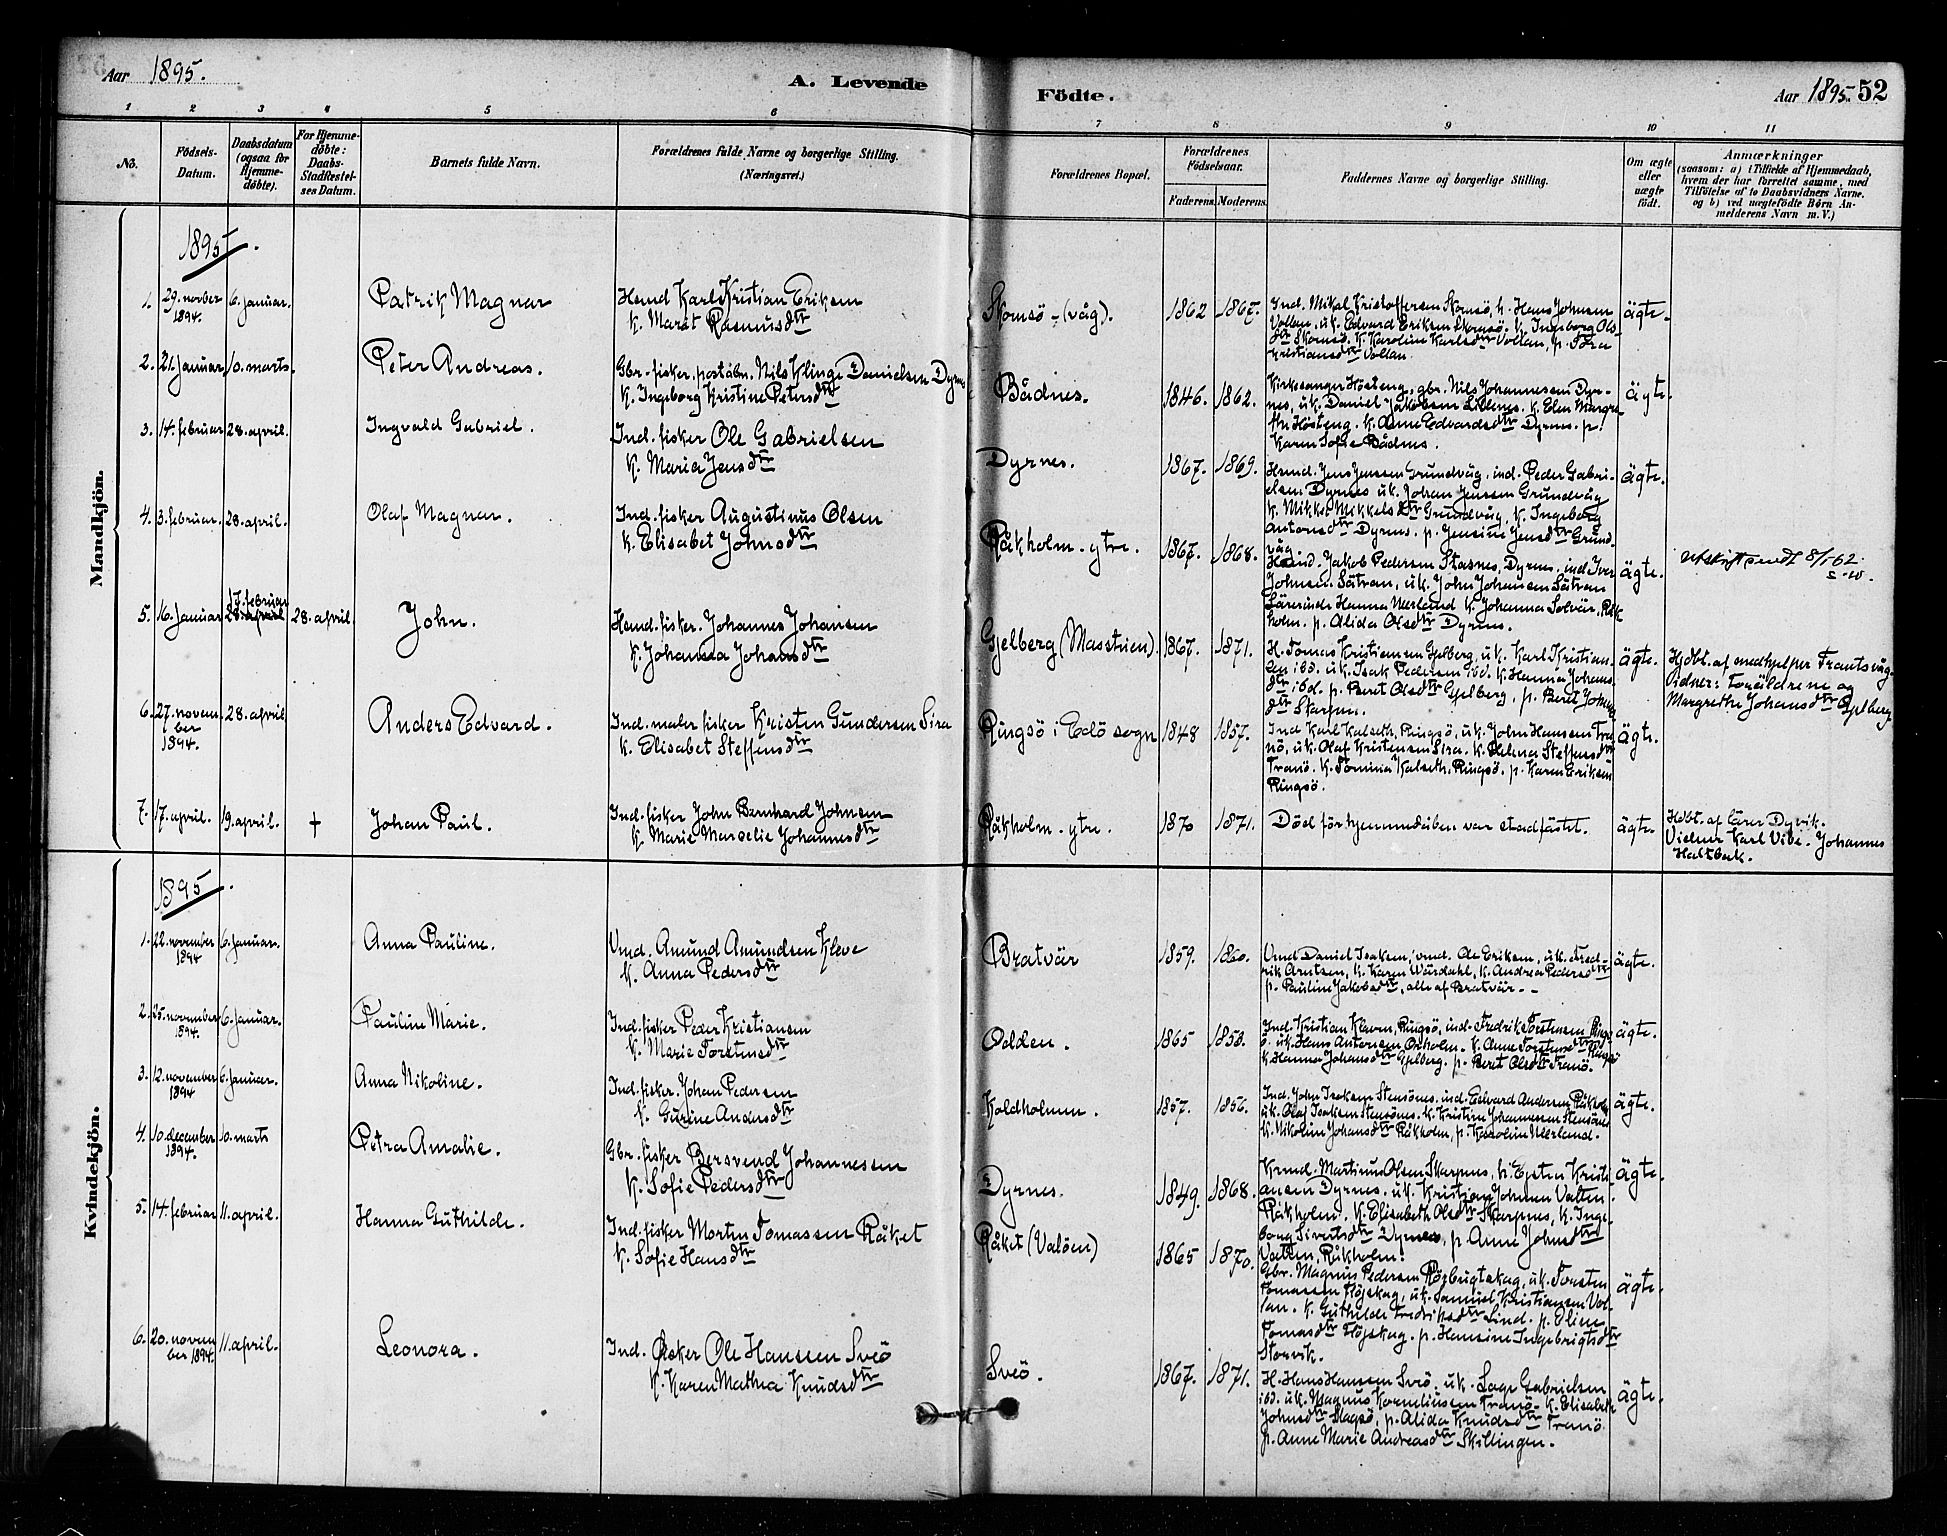 Aar 1895.
A. Levende
Födte.
Aar 1895. 52
1 2 3 4 5 6 7 8 9 10 11
No.
Födsels-
Datum.
Daabsdatum
(ogsaa for
Hjemme-
döbte).
For Hjemme-
döbte:
Daabs-
Stadfæstel-
ses Datum.
Barnets fulde Navn.
Forældrenes fulde Navne og borgerlige Stilling.
(Næringsvei.)
Forældrenes Bopæl.
Forældrenes
Födselsaar.
Faderens. Moderens.
Faddernes Navne og borgerlige Stilling.
Om ægte
eller
uægte
födt.
Anmærkninger
(saasom: a) i Tilfælde af Hjemmedaab,
hvem der har forrettet samme, med
Tilföielse af to Daabsvidners Navne,
og b) ved uægtefödte Börn An-
melderens Navn m. V.)
Mandkjön.
1895.
1. 29. novber
1894.
6. januar.
Patrik Magnar
Hsmd Karl Kristian Eriksen
k. Marat Rasmusdtr
Skomsö - (våg).
1862 1867.
Ind. Mikal Kristoffersen Skomsö, h. Hans Johnsen
Vollan, uk. Edvard Eriksen Skomsö. k. Ingeborg Ols-
dtr Skomsö. k. Karoline Karlsdtr Vollan, p. Tora
Kristiansdtr Vollan.
ägte.
2. 21. januar 10. marts.
Peter Andreas.
Gbr. fisker. poståbn. Nils Klinge Danielsen Dyrnes
k. Ingeborg Kristine Petersdtr
Bådnes.
1846. 1862.
Kirkesanger Hösteng, gbr. Nils Johannessen Dyr-
nes, uk. Daniel Jakobsen Lillenes. k. Elen Margre-
the Hösteng. k. Anne Edvardsdtr Dyrnes. p.
Karen Sofie Bådnes.
ägte.
3. 14. februar 28. april.
Ingvald Gabriel.
Ind. fisker Ole Gabrielsen
k. Maria Jensdtr
Dyrnes.
1867. 1869.
Hsmd. Jens Jenssen Grundvåg, ind. Peder Gabri-
elsen Dyrnes uk. Johan Jenssen Grundvåg
k. Mikka Mikkelsdtr Grundvåg, k. Ingeborg
Antonsdtr Dyrnes. p. Jensine Jensdtr Grund-
våg.
ägte.
4. 3. februar. 28. april.
Olaf Magnar.
Ind. fisker Augustinus Olsen
k. Elisabet Johnsdtr
Råkholm. ytre.
1867. 1868.
Hsmd. Jakob Pedersen Stasnes, Dyrnes, ind. Iver
Johnsen Sätran, uk. John Johansen Sätran
Lärerinde Hanna Nerland k. Johanna Solvär, Råk-
holm. p. Alida Olsdtr Dyrnes.
ägte.
Utskrift sendt 8/1-62
5. 16. januar 17. februar
28. april 28. april.
John.
Hsmd. fisker. Johannes Johansen
k. Johanna Johansdtr
Gjelberg (Masstuen).
1867. 1871.
H. Tomas Kristiansen Gjelberg, uk. Karl Kristian-
sen ibd. uk. Isak Pedersen ibd. k. Hanna Johans-
dtr ibd. p. Beret Olsdtr Gjelberg, p. Beret Johns-
dtr Skarpen.
ägte.
Hjdbt. af medhjelper Frants våg.
Vidner: Foräldrene og
Margrethe Johansdtr Gjelberg
6. 27. novem-
ber
1894. 28. april
Anders Edvard.
Ind. maler fisker Kristen Gundersen Sira
k. Elisabet Steffensdtr
Ringsö i Edö sogn
1848 1857.
Ind Karl Kalseth, Ringsö, uk. John Hansen Tra-
nö, uk. Olaf Kristensen Sira. k. Helena Steffensdtr
Tranö. k. Tomina Kalseth, Ringsö. p. Karen Eriksen
Ringsö.
ägte.
7. 17. april. 19. april. +
Johan Paul.
Ind. fisker John Bernhard Johnsen
k. Marie Marselie Johannesdtr
Råkholm. ytre.
1870 1871.
Död för hjemmedåben var stadfästet.
ägte.
Hdbt. af lärer Dyrvik.
Vidner Karl Vibe. Johannes
Haltbak.
Kvindekjön.
1895.
1. 22. november
1894 6. januar.
Anna Pauline.
Vmd. Amund Amundsen Kleve
k. Anna Pedersdtr
Bratvär
1859. 1860.
Vmd Daniel Isaksen, vmd. Ole Eriksen, uk. Fred-
rik Arntsen, k. Karen Wärdahl, k. Andrea Pedersdtr
p. Pauline Jakobsdtr, alle af Bratvär. -
ägte.
2. 25. november
1894. 6. januar.
Pauline Marie.
Ind. fisker Peder Kristiansen
k. Marie Torstensdtr
Odden.
1865 1853.
Ind. Kristian Kleven, Ringsö, ind. Fredrik Torstensen Rings-
ö. uk. Hans Antonsen Oxholm. k. Anne Torstensdtr Ringsö
k. Hanna Johansdtr Gjelberg. p. Beret Olsdtr Tranö.
ägte.
3. 12. november
1894 6. januar.
Anna Nikoline.
Ind. fisker. Johan Pedersen
k. Gurine Andersdtr
Koldholmen.
1857. 1856.
Ind. John Isaksen Stensönes. ind. Edvard Andersen Råkholm
uk. Olaf Isaksen Stensönes. k. Kristine Johannesen Stensönes
k. Nikoline Johansdtr Råkholm, p. Karoline Nerland.
ägte.
4. 10. december
1894. 10. marts
Petra Amalie.
Gbr. fisker Bersvend Johannessen
k. Sofie Pedersdtr
Dyrnes.
1849. 1868.
Krmd. Martinus Olsen Skarpnes, h. Eysten Kristi-
ansen Dyrnes. uk. Kristian Johnsen Valten.
Råkholm. k. Elisabeth Olsdtr Skarpnes, k. Inge-
borg Sivertsdtr Dyrnes, p. Anne Johnsdtr
Valten, Råkholm.
ägte.
5. 14. februar 11. april.
Hanna Guthilde.
Ind. fisker Morten Tomassen Råket
k. Sofie Hansdtr
Råket (Valöen)
1865 1870.
Gbr. Magnus Pedersen Röjbugtskag, uk. Torsten
Tomassen Röjskag, uk. Samuel Kristiansen Vol-
lan. k. Guthilde Fredriksdtr Lind. p. Oline
Tomasdtr Röjskag. p. Hansine Ingebrigtsdtr
Storvik.
ägte.
6. 20. novem
ber 1894. 11. april.
Leonora.
Ind. fisker Ole Hanssen Sveö
k. Karen Mathea Knudsdtr
Sveö.
1867. 1871.
H. Hans Hansen Sveö. uk. Lage Gabrielsen
ibd. uk. Magnus Korneliusen Tranö. k. Elisabeth
Johnsdtr Magsö, p. Alida Knudsdtr Tranö.
p. Anne Marie Andreasdtr Skillingen.
ägte.